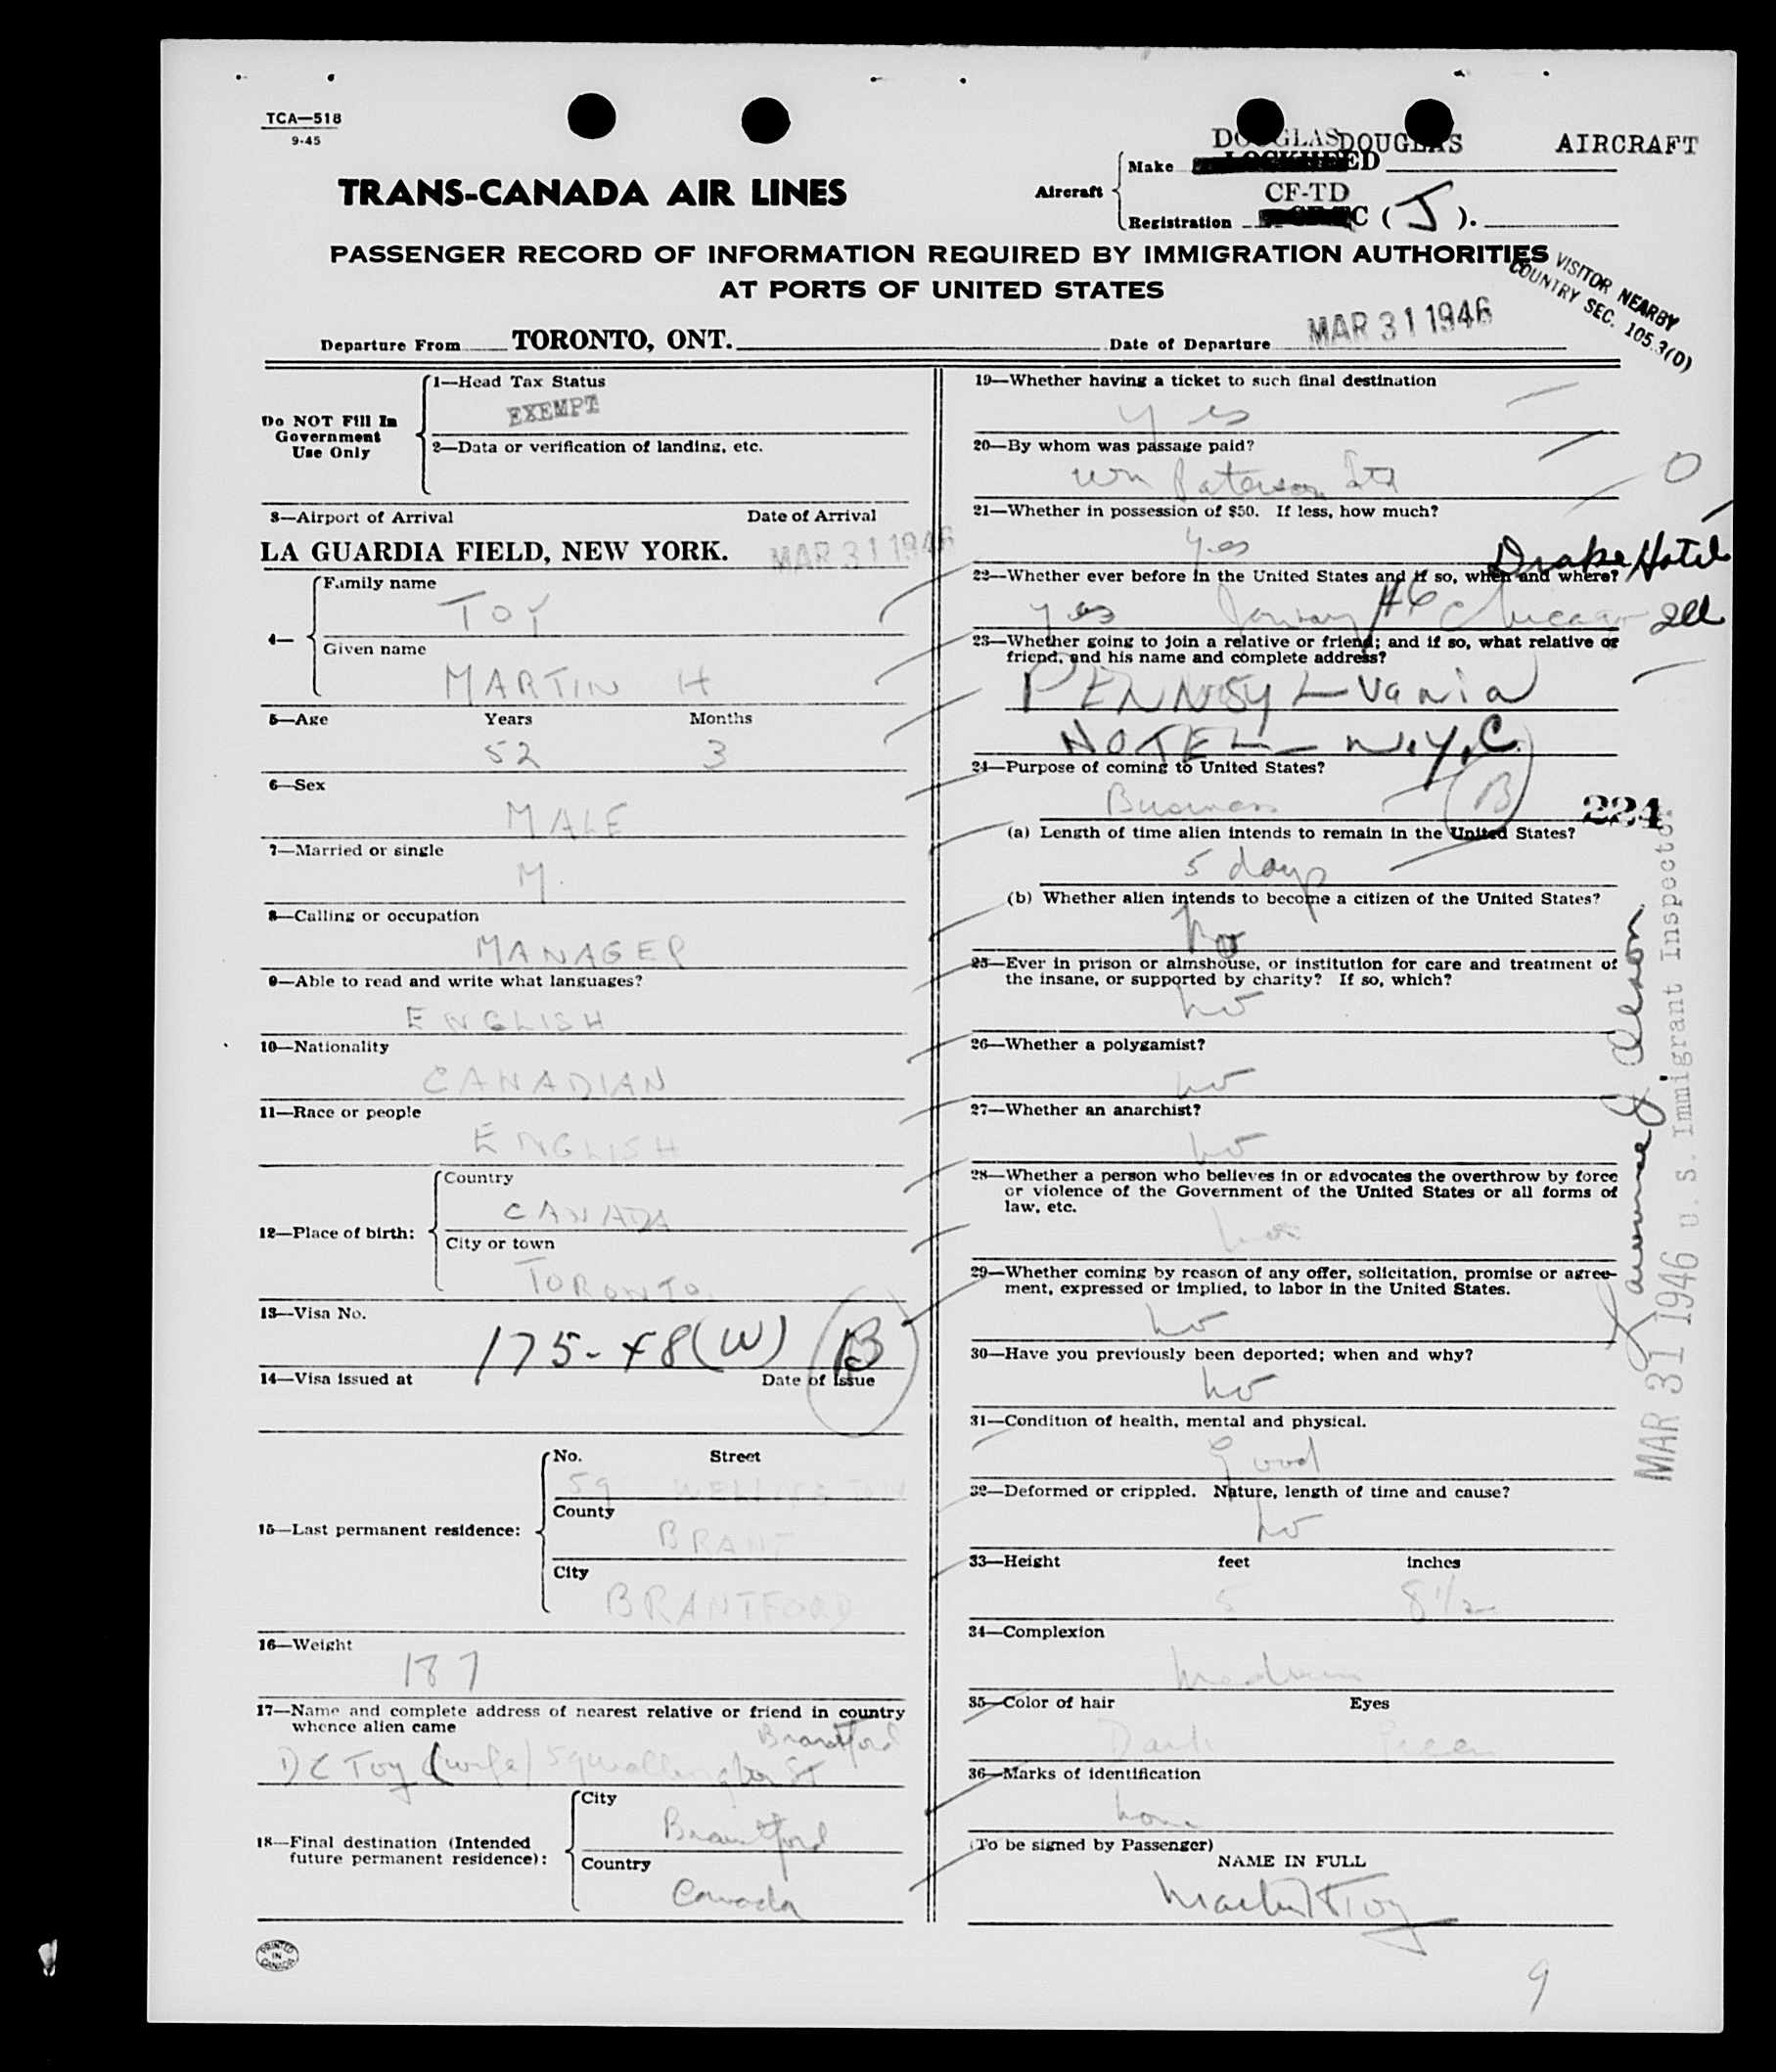 TCA—518
9-45
TRANS-CANADA AIR LINES
DOUGLAS DOUGLAS AIRCRAFT
Aircraft
Make LOCKHEED
CF-TD
Registration C ( J ).
PASSENGER RECORD OF INFORMATION REQUIRED BY IMMIGRATION AUTHORITIES
AT PORTS OF UNITED STATES
VISITOR NEARBY
COUNTRY SEC. 105.3(D)
Departure From TORONTO, ONT. Date of Departure MAR 31 1946
Do NOT Fill In
Government
Use Only
1—Head Tax Status
EXEMPT
2—Data or verification of landing, etc.
3—Airport of Arrival Date of Arrival
LA GUARDIA FIELD, NEW YORK. MAR 31 1946
4—
Family name
TOY
Given name
MARTIN H
5—Age Years Months
52 3
6—Sex
MALE
7—Married or single
M.
8—Calling or occupation
MANAGER
9—Able to read and write what languages?
ENGLISH
10—Nationality
CANADIAN
11—Race or people
ENGLISH
12—Place of birth:
Country
CANADA
City or town
TORONTO.
13—Visa No.
175-48(W) B
14—Visa issued at Date of Issue
15—Last permanent residence:
No. Street
59 WELLINGTON
County
BRANT
City
BRANTFORD
16—Weight
187
17—Name and complete address of nearest relative or friend in country
whence alien came
Brantford
D C Toy (wife) 59 Wellington St
18—Final destination (Intended
future permanent residence):
City
Brantford
Country
Canada
PRINTED
IN
CANADA
19—Whether having a ticket to such final destination
yes
20—By whom was passage paid?
Wm Paterson Ltd
O
21—Whether in possession of $50. If less, how much?
yes
Drake Hotel
22—Whether ever before in the United States and if so, when and where?
yes January 46 Chicago Ill
23—Whether going to join a relative or friend; and if so, what relative or
friend, and his name and complete address?
PENNSYLvania
HOTEL — N.Y.C.
24—Purpose of coming to United States?
Business B
224
(a) Length of time alien intends to remain in the United States?
5 days
(b) Whether alien intends to become a citizen of the United States?
No
25—Ever in prison or almshouse, or institution for care and treatment of
the insane, or supported by charity? If so, which?
No
26—Whether a polygamist?
No
27—Whether an anarchist?
No
28—Whether a person who believes in or advocates the overthrow by force
or violence of the Government of the United States or all forms of
law, etc.
No
29—Whether coming by reason of any offer, solicitation, promise or agree-
ment, expressed or implied, to labor in the United States.
No
30—Have you previously been deported; when and why?
No
31—Condition of health, mental and physical.
Good
32—Deformed or crippled. Nature, length of time and cause?
No
33—Height feet inches
5 8 1/2
34—Complexion
Medium
35—Color of hair Eyes
Dark Green
36—Marks of identification
None
(To be signed by Passenger)
NAME IN FULL
Martin H Toy
9
Lawrence J
MAR 31 1946 U. S. Immigrant Inspector